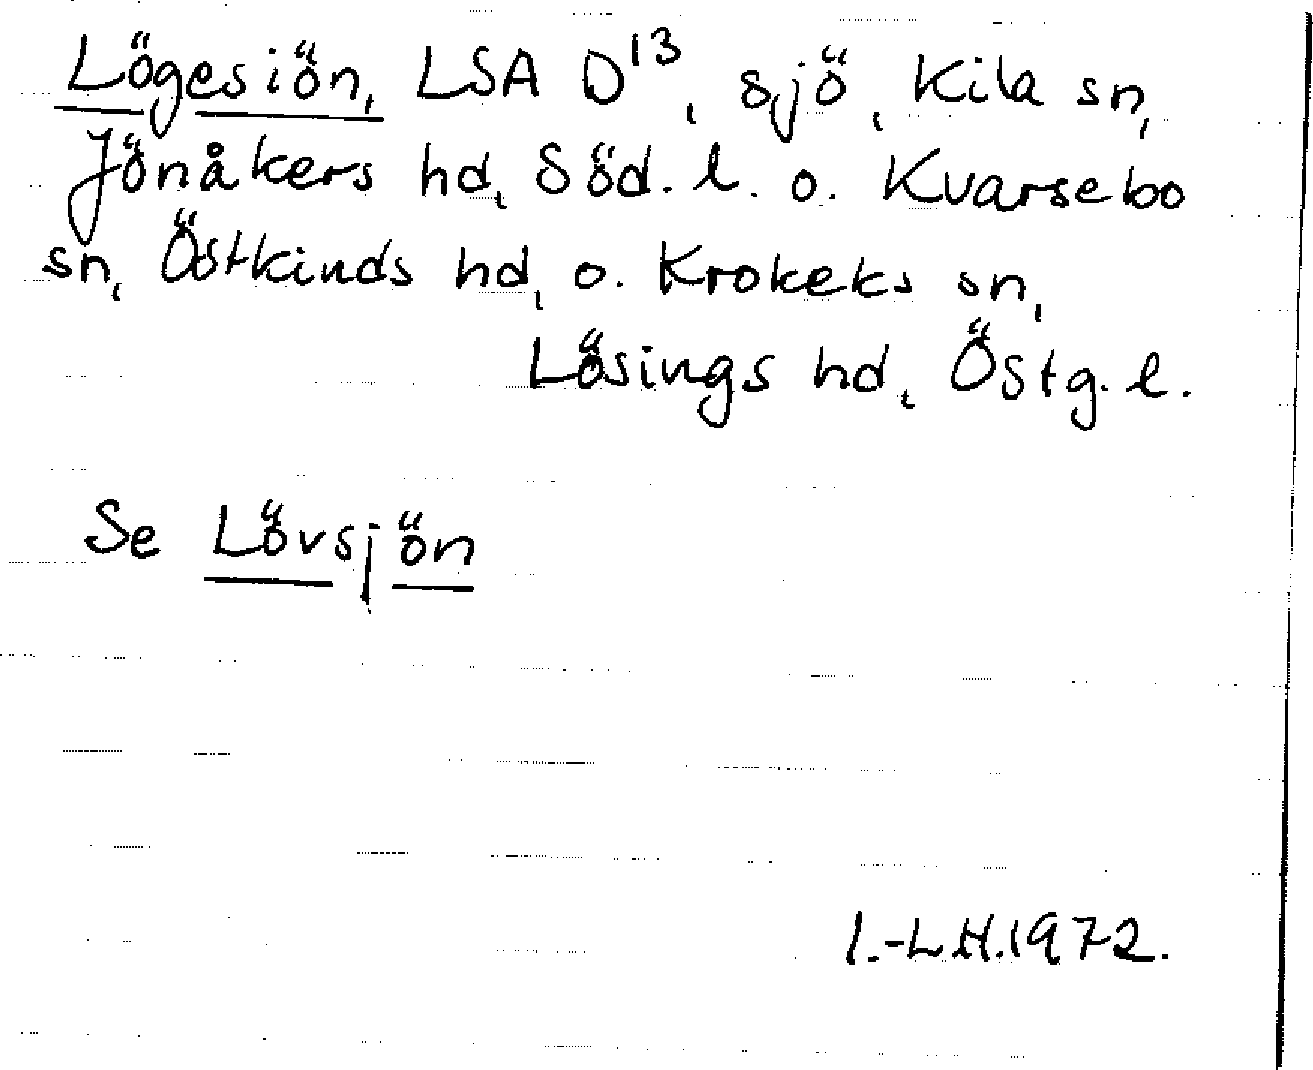 Lögesiön, LSA D¹³, sjö, Kila sn,
Jönåkers hd, Söd. l. o. Kvarsebo
sn, Östkinds hd, o. Krokeks sn,
Lösings hd, Östg. l.
Se Lövsjön
I.-L.H.1972.